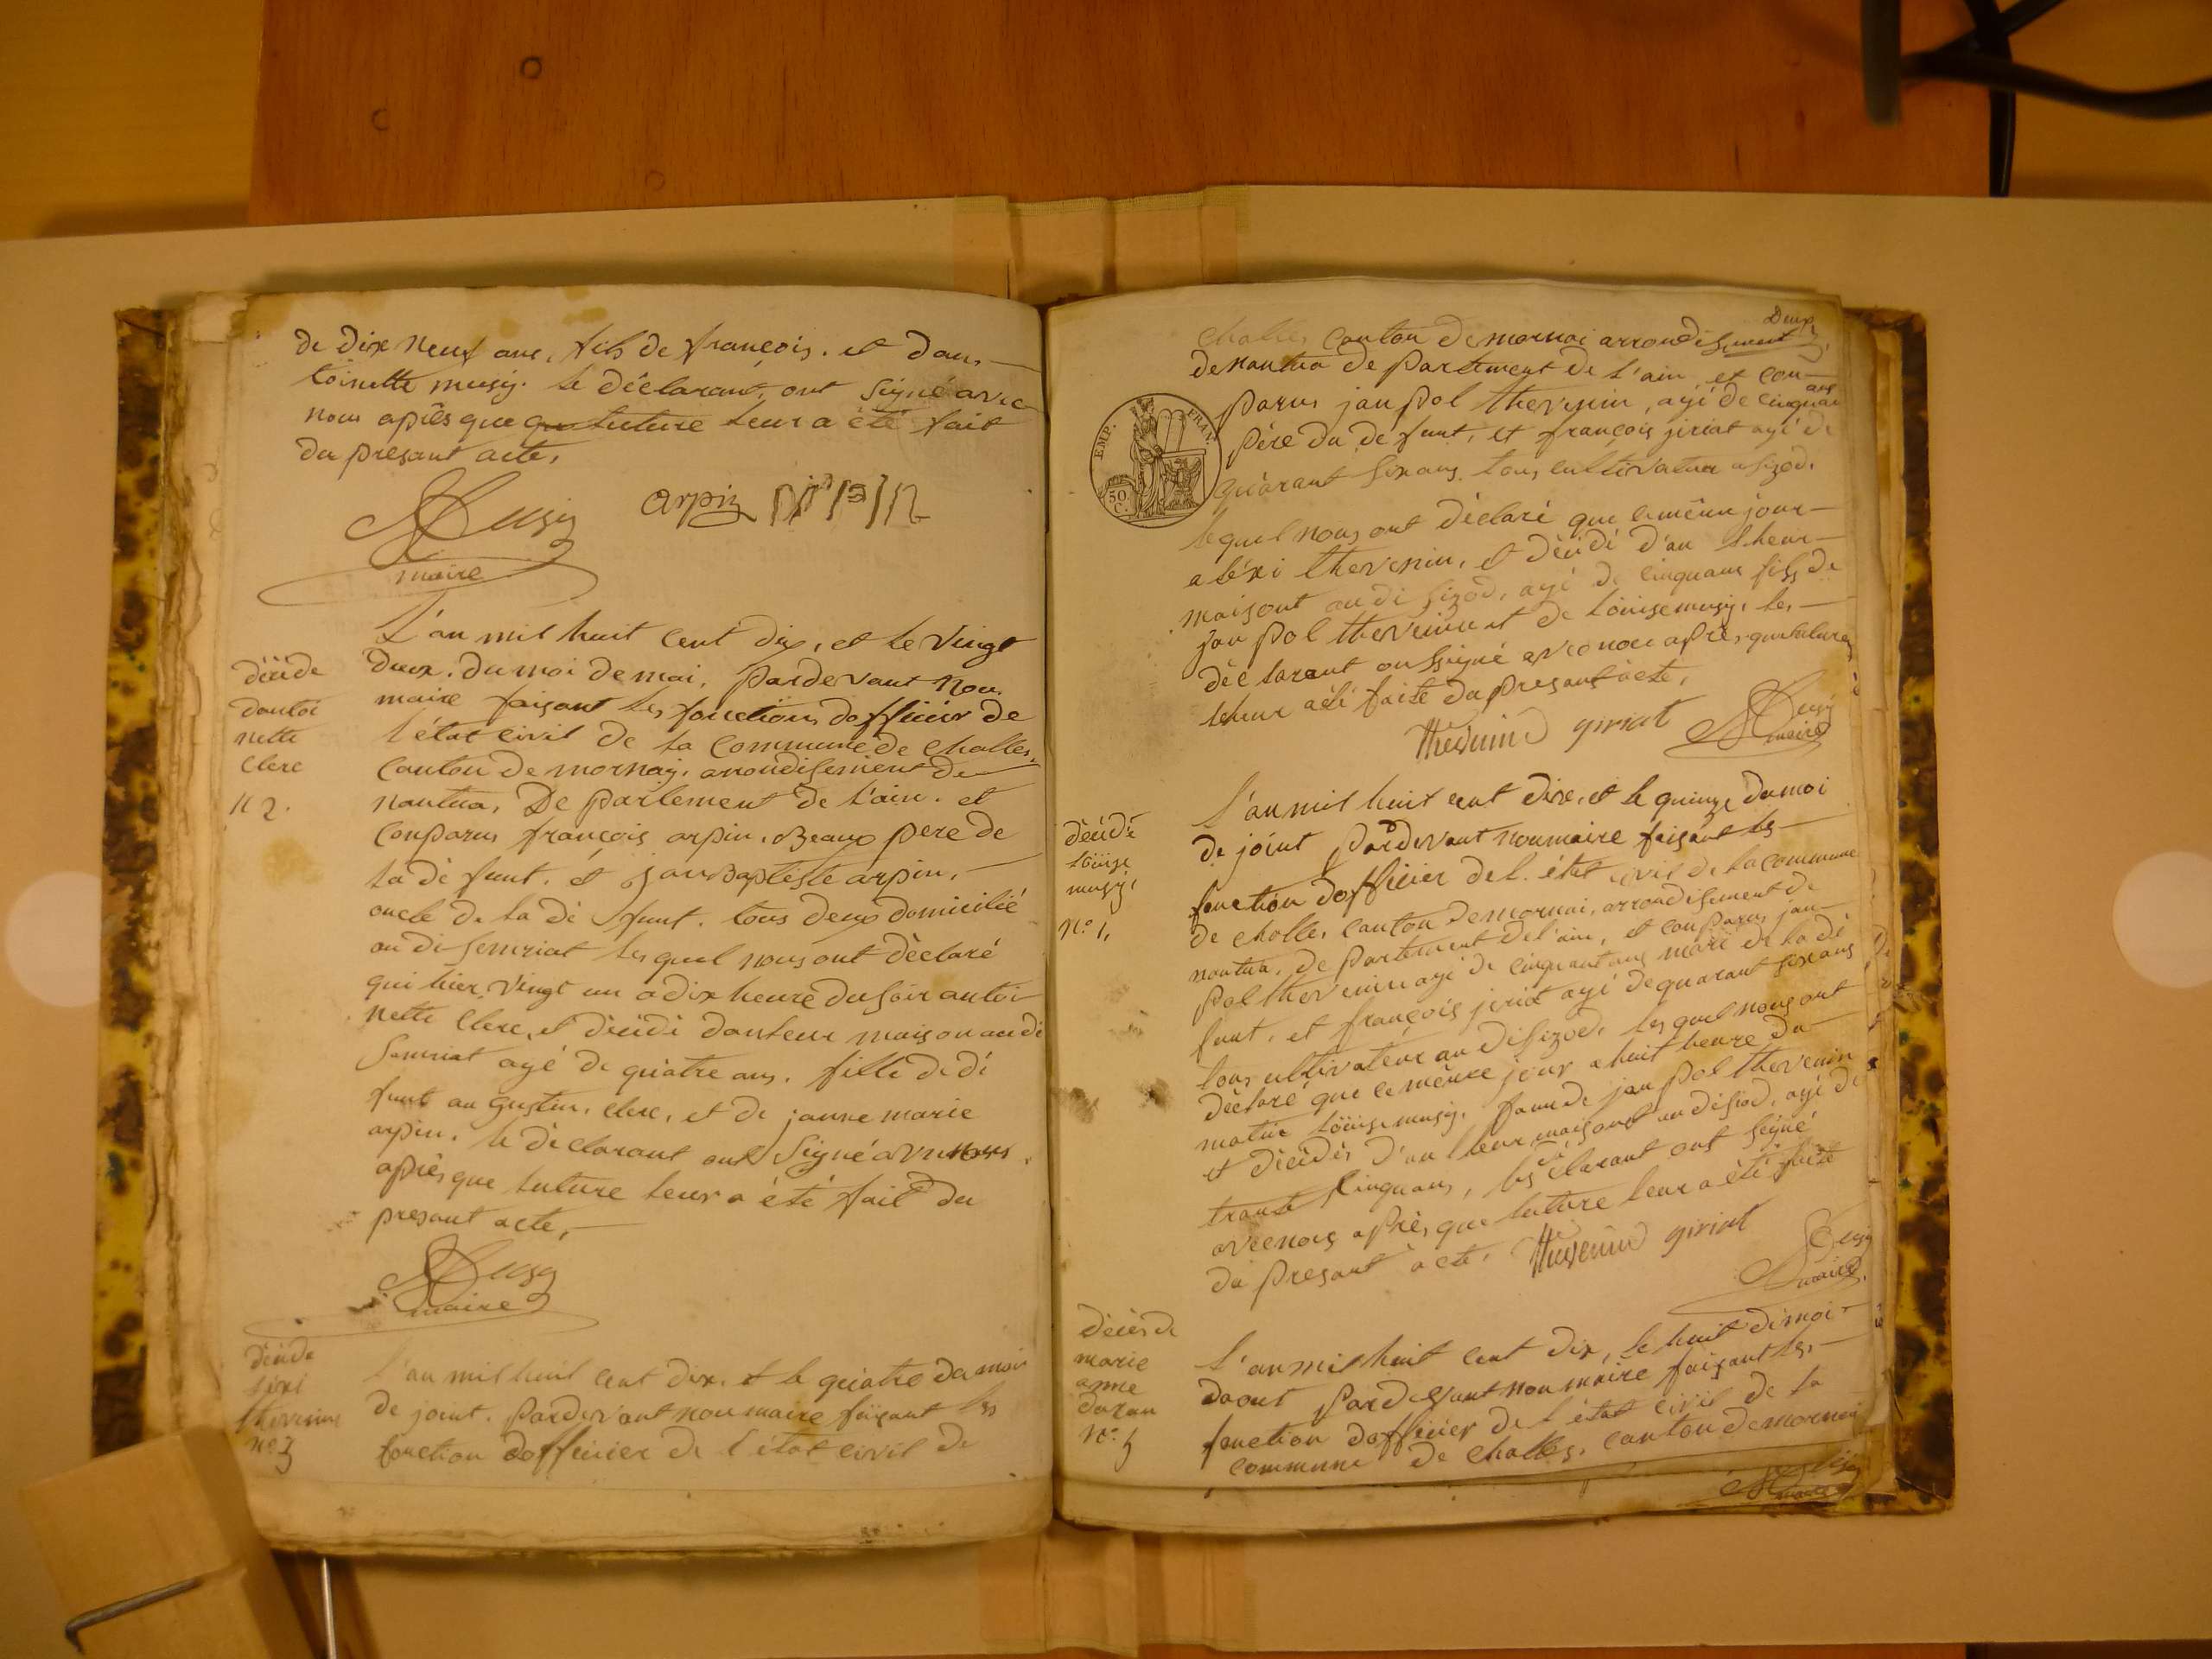 de dix neuf ans, fils de françois. et dan-
toinette musy. le déclarant, ont signé avec
nous après que luture leur a été fait
du presant acte,
Musy arpin
maire
L'an mil huit cent dix, et le vingt
deux. du moi de mai, pardevant nou
maire faisant les fonctions dofficier de
l'état civil de la commune de challes,
canton de mornay, arrondisement de
nantua, De parlement de l'ain. et
conparus françois arpin. Beaux pere de
la dé funt. et jan Baptiste arpin, -
oncle de la dé funt. tous deux domicilié
au di senriat les quel nous ont déclaré
qui hier vingt un a dix heure du soir antoi
nette clerc, et décédé danleur maison au di
Senriat agé de quatre ans. fille de dé
funt augustin, clerc, et de janne marie
arpin. le déclarant ont signé avec nous
après que luture leur a été fait du
presant acte, -
Musy
maire
décéde
dantoi
nette
clerc
N 2.
décéde
lexi
thevenin
N° 3
l'an mil huit cent dix. et le quatre du moi
de joint. Pardevant nou maire faisant les
fonction dofficier de l'état civil de
Deux
challes, canton de mornai arrondisement
de nantua de partement de l'ain, et con-
parus jan pol thevenin, agé de cinquan ans
père du dé funt, et françois jiriat agé de
quarant six ans. tous cultivateur a sizod.
lequel nous ont déclaré que le même jour -
aléxi thevenin, et décédé d'an lheur -
maisont au di sizod, agé de cinq ans fils de
jan pol thevenin et de louise musy, les, -
déclarant on signé avec nou après, que luture
leheur a été faite du presant acte,
thevenin giriat Musy
maire
EMP. FRAN.
50
C.
décédé
louise
musy,
N° 1,
l'an mil huit cent dixe, et le quinze du moi
de joint pardevant nou maire faisant les -
fonction dofficier de l. état civil de la commune
de challe, canton de mornai, arrondisement de
nantua, de partement de l'ain, et conparus jan
pol thevenin agé de cinquant ans mari de la dé
funt, et françois jiriat agé de quarant six ans
tous cultivateur au di sizod, les quel nous ont
déclaré que le même jour a huit heure du
matin louise musy, fame de jan pol thevenin
et décédés d'an leur maisont au di siod, agé de
trante cinq ans, les déclarant ont signé
avec nous après, que luture leur a été faite
du presant acte, thevenin giriat Musy
maire
décès de
marie
anne
N°. 5
l'an mil huit cent dix, le huit di moi -
daout pardevant nou maire faisant les, -
fonction dofficier de l'état civil de la
commune de challes, canton de mornai
Musy
maire